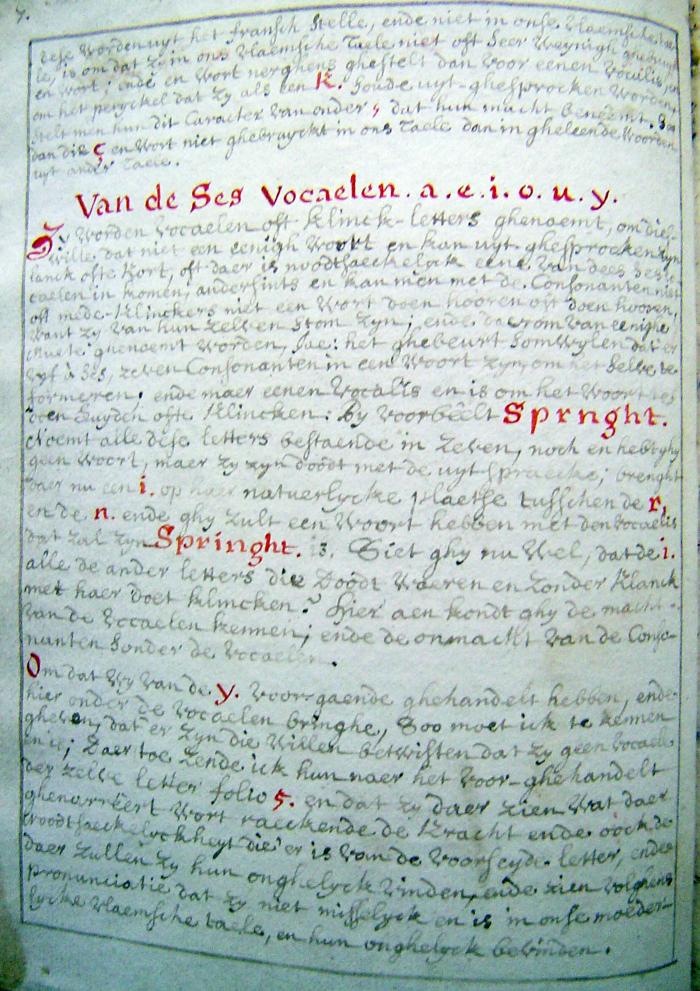 7.
dese Worden uyt het fransch stelle, ende niet in onse Vlaemsche tae-
le, is om dat zy in ons Vlaemsche Taele niet oft Seer Weynigh ghebruyckt
en Wort; ende en Wort nerghens ghestelt dan voor eenen Vocalis, en
om het peryckel dat zy als een K. Soude uyt-ghesprocken Worden
stelt men hun dit Caracter van onder ς dat hun macht beneemt. Soo
dan die ç en Wort niet ghebruyckt in ons Taele dan in gheleende Woorden
uyt ander Taele.
Van de Ses Vocaelen . a . e . i . o . u . y .
Zy Worden Vocaelen oft Klinck-letters ghenoemt, om dies-
Wille dat niet een eenigh Woort en kan uyt-ghesprocken zyn
lanck ofte Kort, oft daer is noodtsaeckelyck eene van dees Ses Vo-
caelen in komen, andersints en kan men met de Consonanten niet
oft mede-Klinckers niet een Wort doen hooren oft doen hooren,
Want zy van hun zelven Stom zyn; ende daerom van eenighe
Muete ghenoemt Worden, Jae: het ghebeurt Somwylen dat er
vyf à Ses, zeven Consonanten in een Woort zyn, om het Selve te
formeren, ende maer eenen Vocalis en is om het Woort te
doen Luyden ofte Klincken: By voorbeelt Sprnght.
Noemt alle dese letters bestaende in Zeven, noch en hebt ghy
geen Woort, maer zy zyn doodt met de uytspraecke, brenght
daer nu een i. op haer natuerlycke plaetse tusschen de r,
en de n. ende ghy zult een Woort hebben met den Vocalis
dat zal zyn Springht. is. Siet ghy nu Wel, dat de i.
alle de ander letters die Doodt Waeren en zonder Klanck
met haer doet klincken? hier aen kondt ghy de macht
van de Vocaelen kennen; ende de onmacht van de Conso-
nanten Sonder de Vocaelen.
Om dat Wy van de y. Voorgaende ghehandelt hebben, ende
hier onder de Vocaelen bringhe, Soo moet ick te kennen
gheven, dat er zyn die Willen betwisten dat zy geen Vocael
en is; Daer toe Zende ick hun naer het Voor-ghehandelt
der zelve letter folio 5. en dat zy daer zien Wat daer
ghenarréert Wort raeckende de Kracht ende oock de
noodtsaeckelyckheyt die er is van de Voorseyde letter, ende
daer zullen zy hun onghelyck Vinden, ende zien Volghens
pronunciatie dat zy niet misselyck en is in onse moeder-
lycke Vlaemsche taele, en hun onghelyck bevinden.